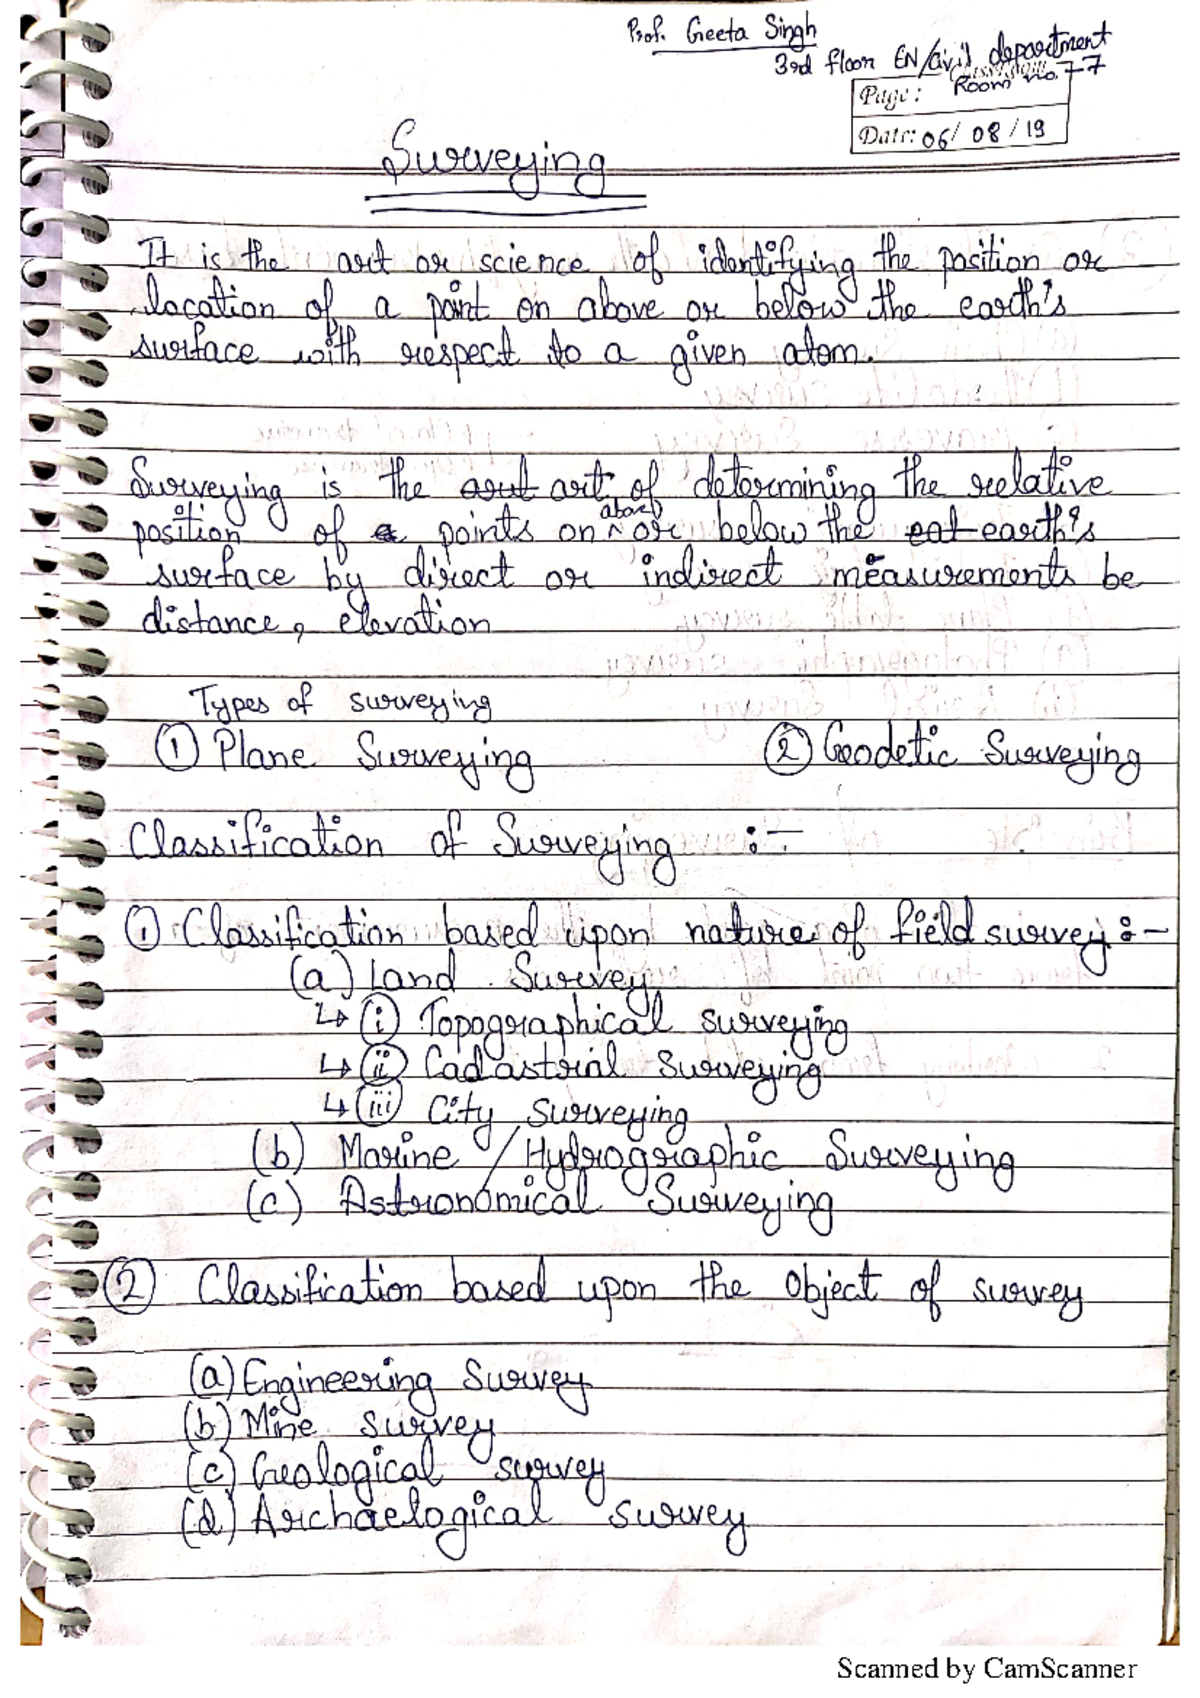 Prof. Geeta Singh
3rd floor EN/civil department
Room no. - 7
Page:
Date: 06/08/19
Surveying
It is the art or science of identifying the position or
location of a point on above or below the earth's
surface with respect to a given atom.
Surveying is the art of determining the relative
above
position of points on ^ or below the earth's
surface by direct or indirect measurements be
distance, elevation
Types of surveying
① Plane Surveying ② Geodetic Surveying
Classification of Surveying :-
① Classification based upon nature of field survey :-
(a) Land Survey
↳ (i) Topographical surveying
↳ (ii) Cadastrial Surveying
↳ (iii) City Surveying
(b) Marine / Hydrographic Surveying
(c) Astronomical Surveying
② Classification based upon the Object of survey
(a) Engineering Survey
(b) Mine survey
(c) Geological survey
(d) Archaelogical survey
Scanned by CamScanner